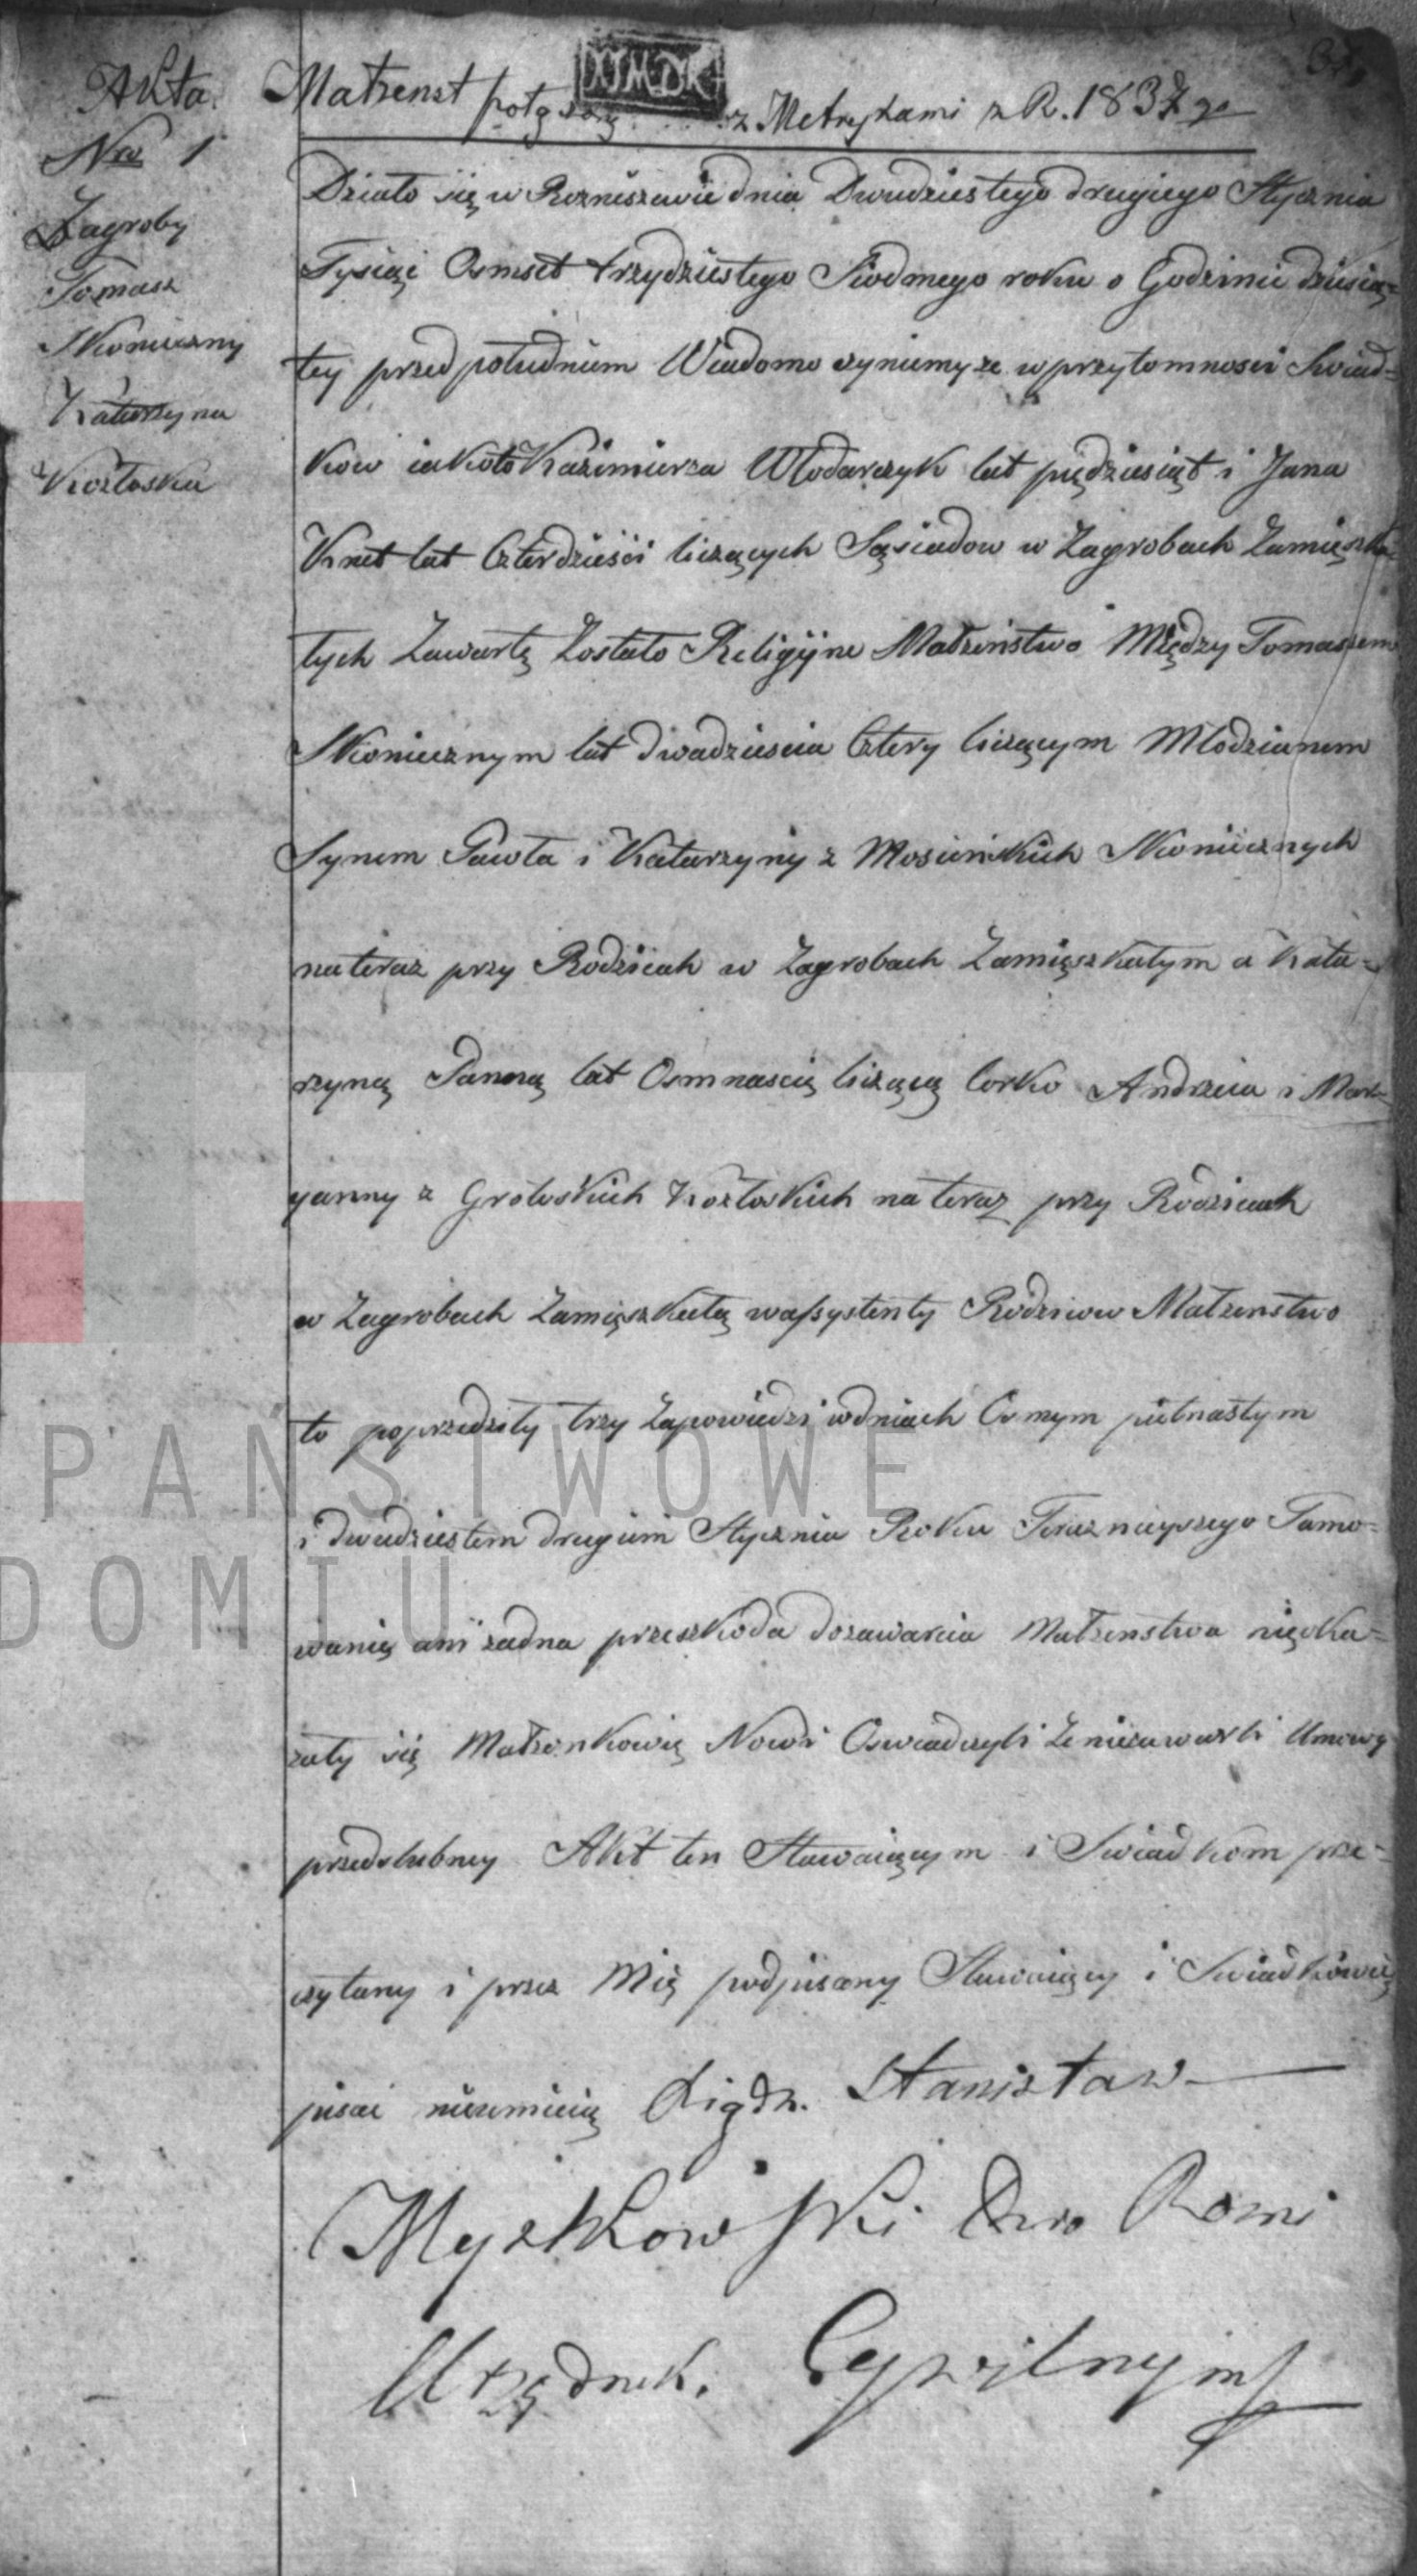 Akta Małżenst połączony z Metrykami z R. 1837go
Nro 1
Zagroby
Tomasz
Skonieczny
Katarzyna
Kozłoska
Działo się w Rozniszewie dnia Dwudziestego drugiego Stycznia
Tysiąc Osmset trzydziestego Siodmego roku o Godzinie dziesią-
tey przed południem Wiadomo czyniemy ze w przytomnosci Swiad-
kow iakoto Kazimierza Włodarczyk lat piędziesiąt i Jana
Knet lat Czterdzieści liczących Sąsiadow w Zagrobach Zamięszka
łych Zawartę Zostało Religijne Małżeństwo Między Tomaszem
Skoniecznym lat dwadziescia Cztery liczącym Młodzianem
Synem Pawła i Katarzyny z Mosieńskich Skoniecznych
na teraz przy Rodzicach w Zagrobach Zamięszkałym a Kata-
rzyną Panną lat Osmnascię liczącą Corko Andrzeia i Mar-
yanny z Grotoskich Kozłoskich na teraz przy Rodzicach
w Zagrobach Zamięszkałą w assystenty Rodzicow Małzenstwo
to poprzedziły trzy Zapowiedzi w dniach Osmym pietnastym
i dwudziestem drugiem Stycznia Roku Teraznieyszego Tamo-
wanię ani zadna przeszkoda do zawarcia Małzenstwa nię oka-
zały się Małzonkowię Nowi Oswiadczyli Ze nie zawarli Umowy
przedslubney Akt ten Stawaiącym i Swiadkom prze-
czytany i przez Mię podpisany Stawaiący i Swiadkowię
pisac nie umieią Xiądz. Stanisław
Myszkowski
Urzędnik. Cywilnym
PAŃSTWOWE
DOMIU